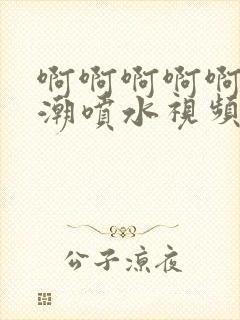 啊啊啊啊啊
潮噴水視頻
公子涼夜